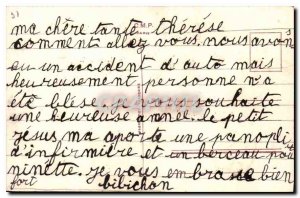 ma chère tante thérèse
comment allez vous, nous avons
eu un accident d'auto mais
heureusement personne n'a
été blésé. je vous souhaite
une heureuse année. le petit
jésus, ma aporté une panopli
d'infirmière et un berceau pour
ninette. je vous embrasse bien
fort bibichon